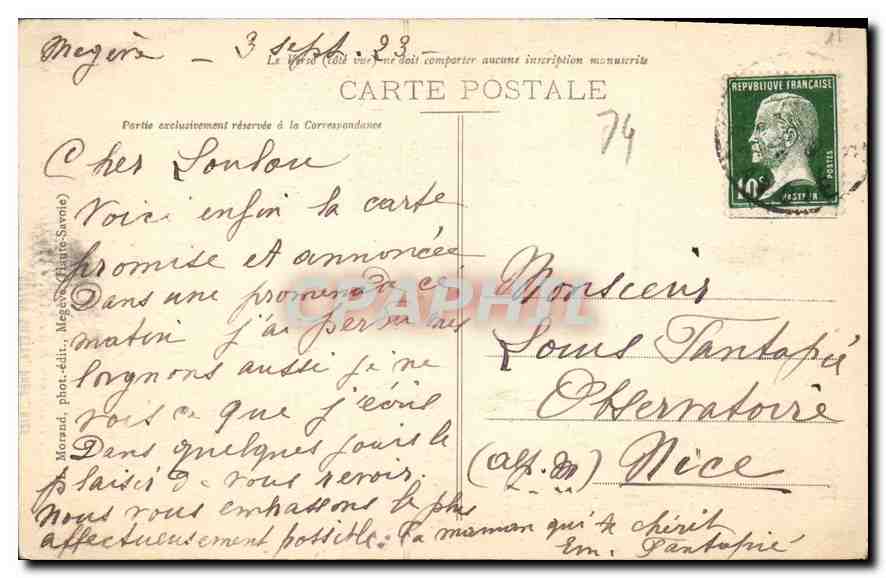 Megève - 3 sept. 23 -
Le Verso (côté vue) ne doit comporter aucune inscription manuscrite
CARTE POSTALE
Partie exclusivement réservée à la Correspondance
74
REPVBLIQUE FRANÇAISE
POSTES
10c
PASTEUR
Cher Loulou
Voici enfin la carte
promise et annoncée
Dans une promenade ce
matin j'ai perdu mes
lorgnons aussi je ne
vois ce que j'écris
Dans quelques jours le
plaisir de vous revoir.
Nous vous embrassons le plus
affectueusement possible. Ta maman qui te chérit
Em. Tantapié
Monsieur
Louis Tantapié
Observatoire
(Alp. M) Nice
Morand, phot.-édit., Megève (Haute-Savoie)
CPAPHIL